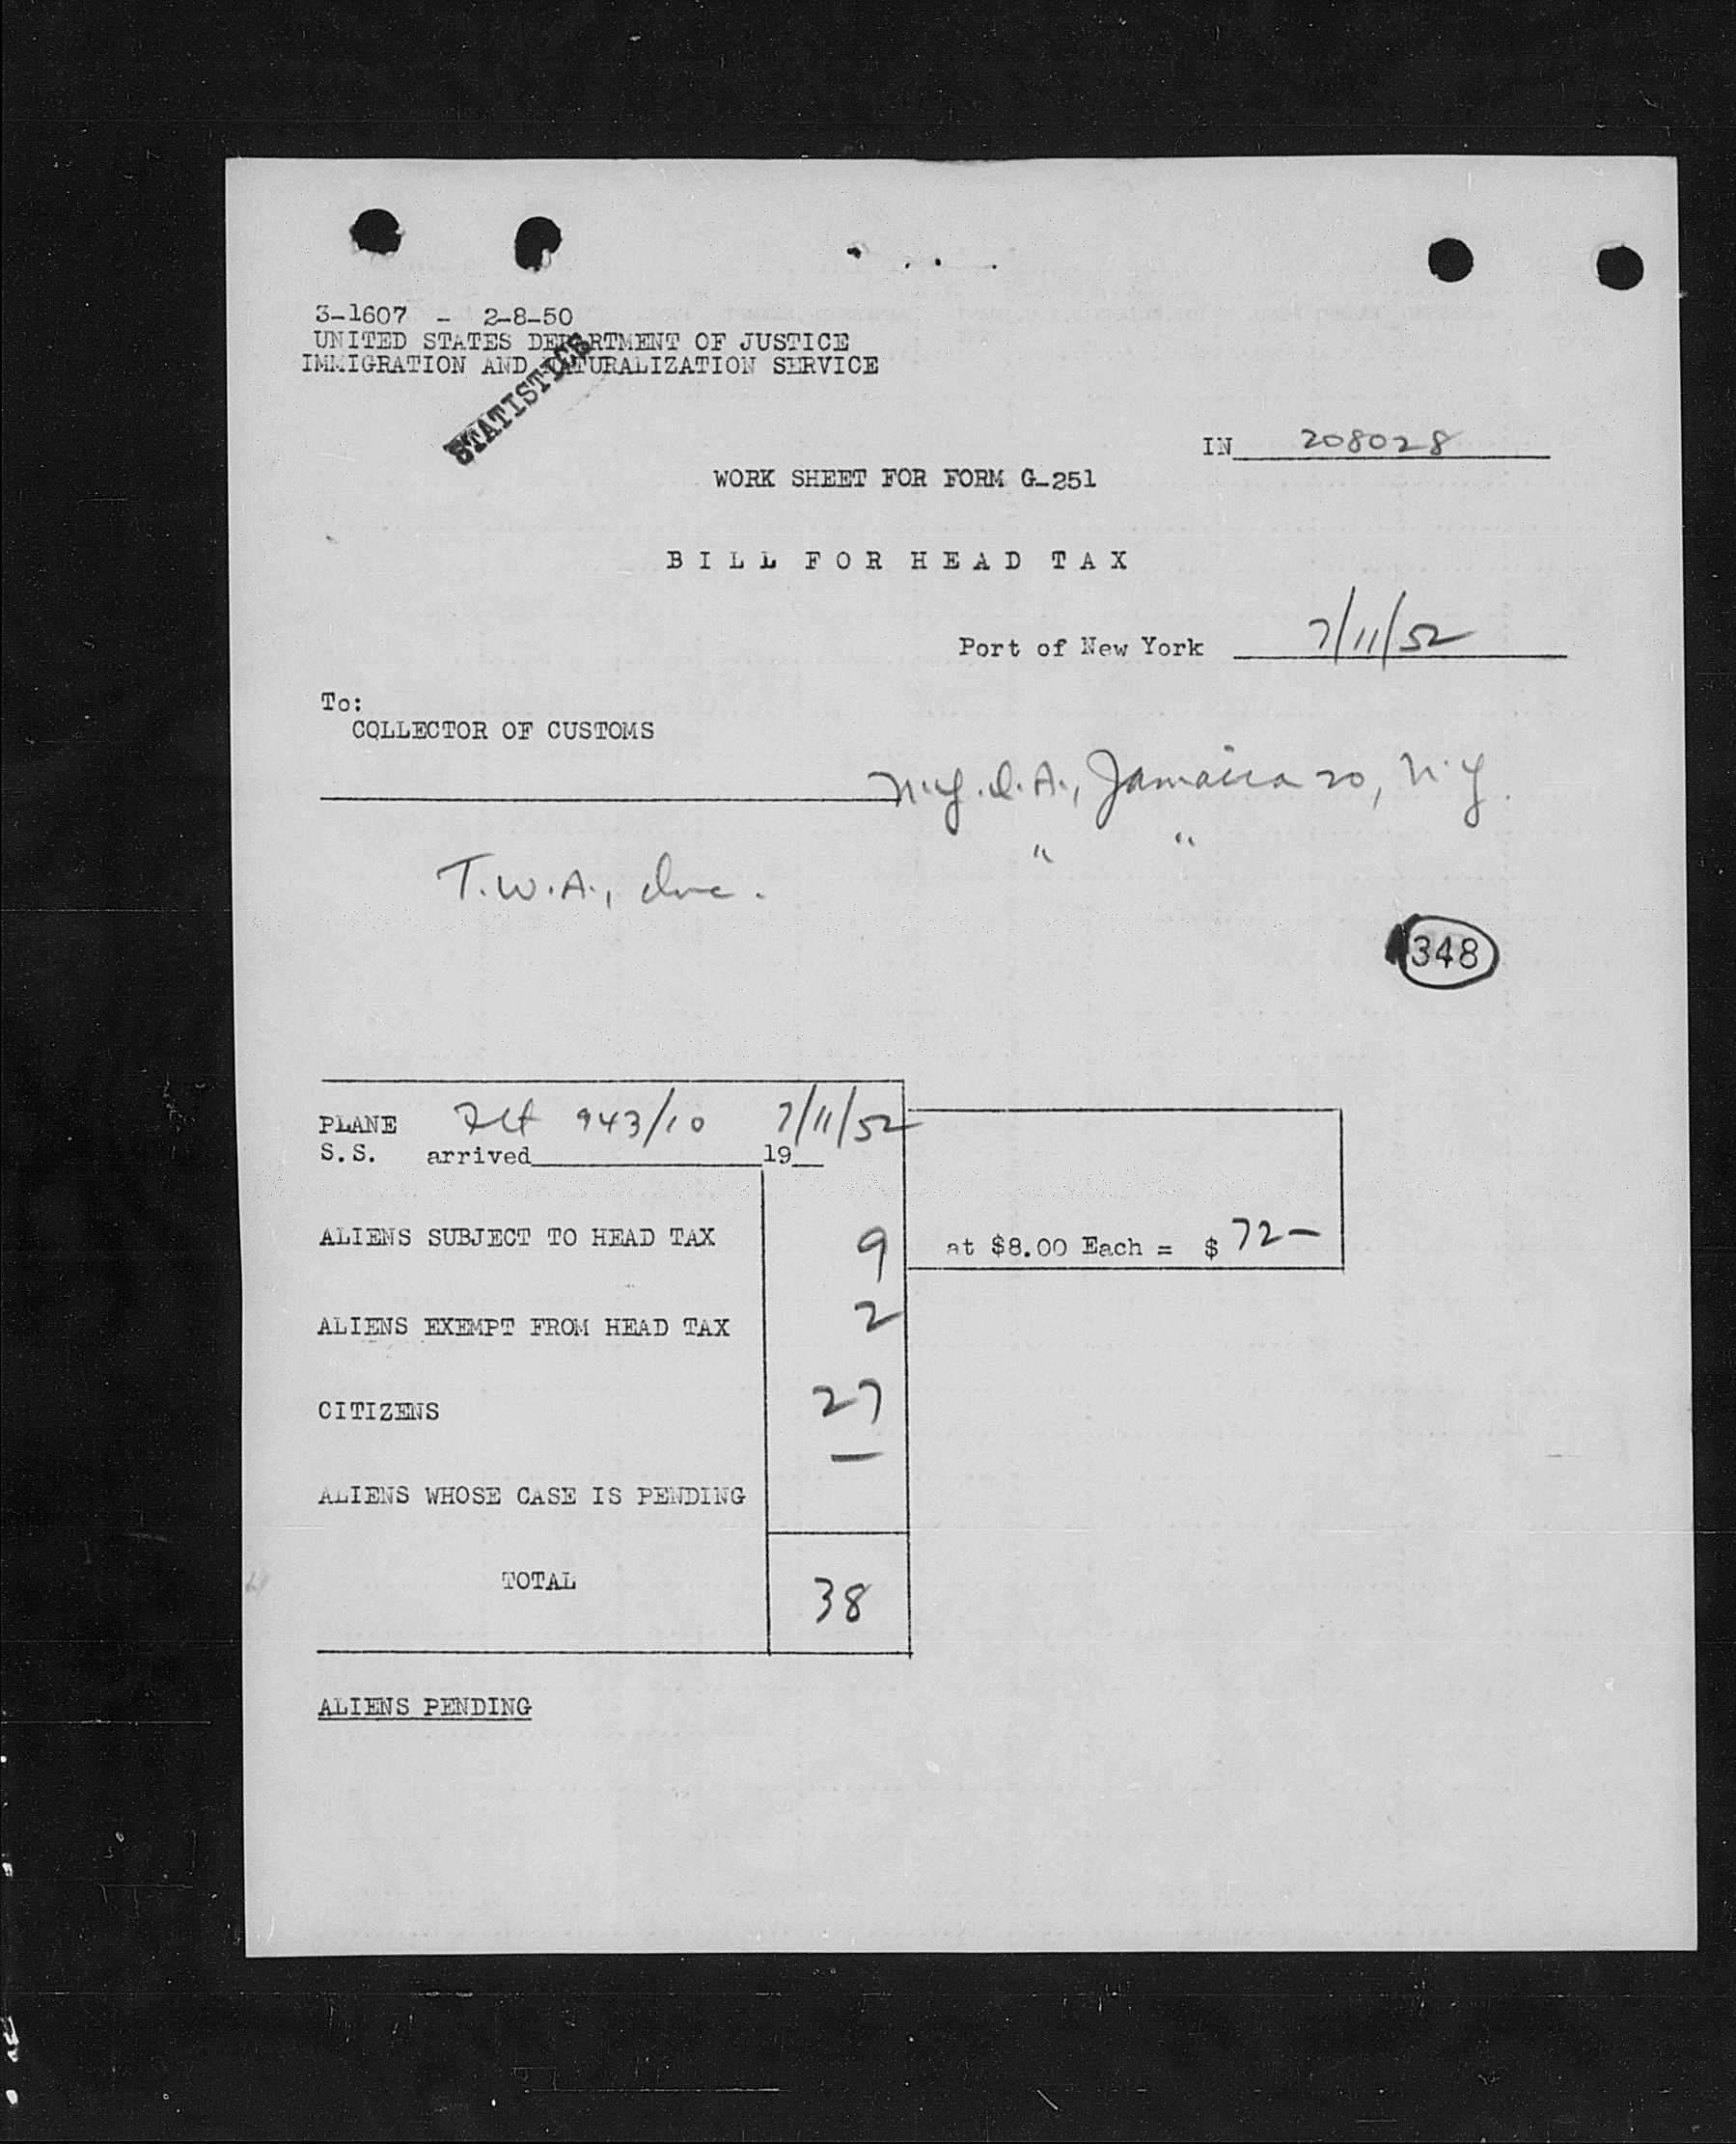 3-1607 - 2-8-50
UNITED STATES DEPARTMENT OF JUSTICE
IMMIGRATION AND NATURALIZATION SERVICE
STATISTICS
IN 208028
WORK SHEET FOR FORM G-251
BILL FOR HEAD TAX
Port of New York 7/11/52
To:
COLLECTOR OF CUSTOMS
N.Y.I.A., Jamaica 20, N.Y.
" "
T.W.A., Inc.
348
PLANE Flt 943/10 7/11/52
S.S. arrived 19
ALIENS SUBJECT TO HEAD TAX 9 at $8.00 Each = $ 72-
ALIENS EXEMPT FROM HEAD TAX 2
CITIZENS 27
ALIENS WHOSE CASE IS PENDING —
TOTAL 38
ALIENS PENDING